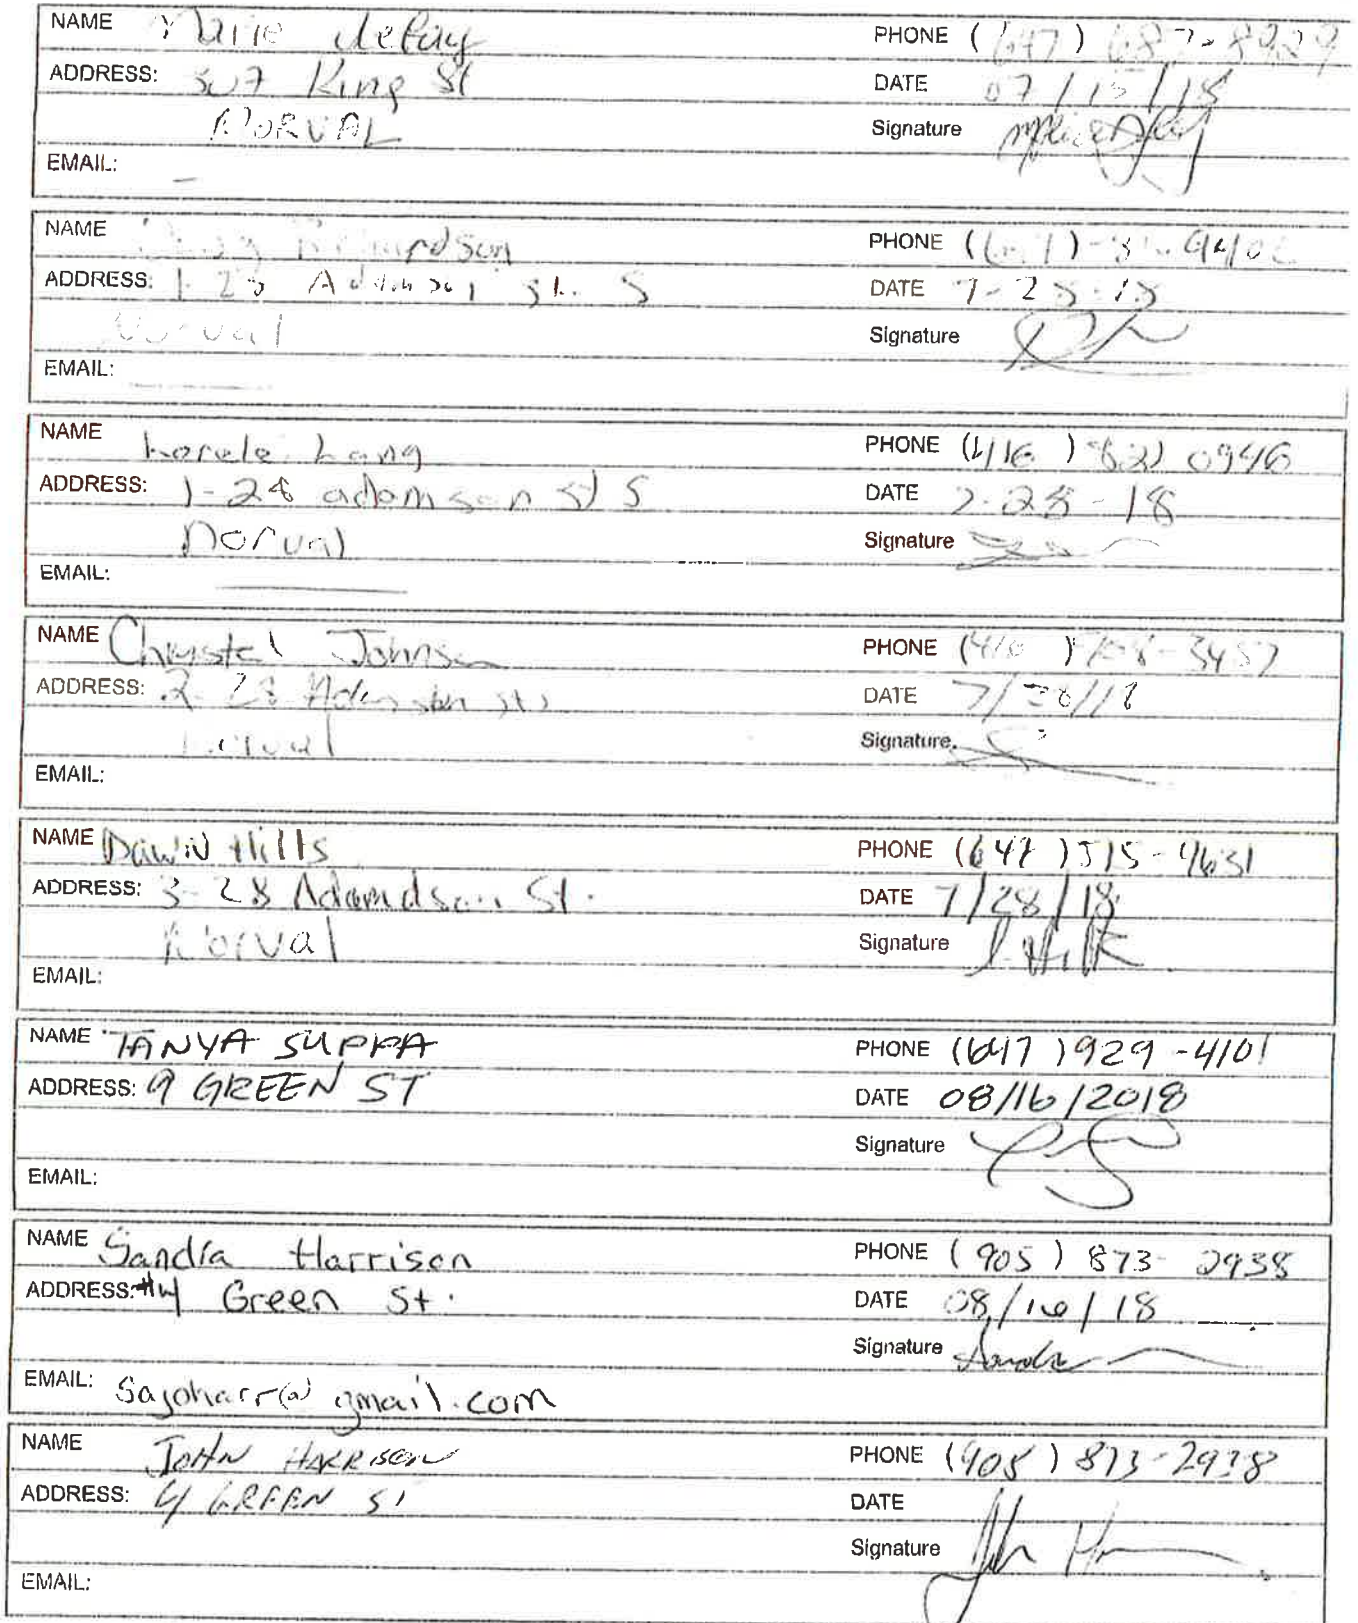 NAME Marie deFay PHONE (647) 687-8929
ADDRESS: 307 King St DATE 07/15/18
NORVAL Signature
EMAIL: -
NAME Richardson PHONE
ADDRESS: 1-28 S DATE 7-28-18
Norval Signature
EMAIL:
NAME Lorele Lang PHONE (416) 0946
ADDRESS: 1-28 adamson st S DATE 7-28-18
Norval Signature
EMAIL:
NAME Christel Johnson PHONE (416)
ADDRESS: 2-28 DATE
Norval Signature
EMAIL:
NAME Dawn Hills PHONE (647) 515-4631
ADDRESS: 3-28 Adamdson St. DATE 7/28/18
Norval Signature
EMAIL:
NAME TANYA SUPPA PHONE (647) 929-4101
ADDRESS: 9 GREEN ST DATE 08/16/2018
Signature
EMAIL:
NAME Sandra Harrison PHONE (905) 873-2938
ADDRESS: #4 Green St. DATE 08/16/18
Signature
EMAIL: Sajoharr@gmail.com
NAME JOHN HARRISON PHONE (905) 873-2938
ADDRESS: 4 GREEN ST DATE
Signature John
EMAIL: